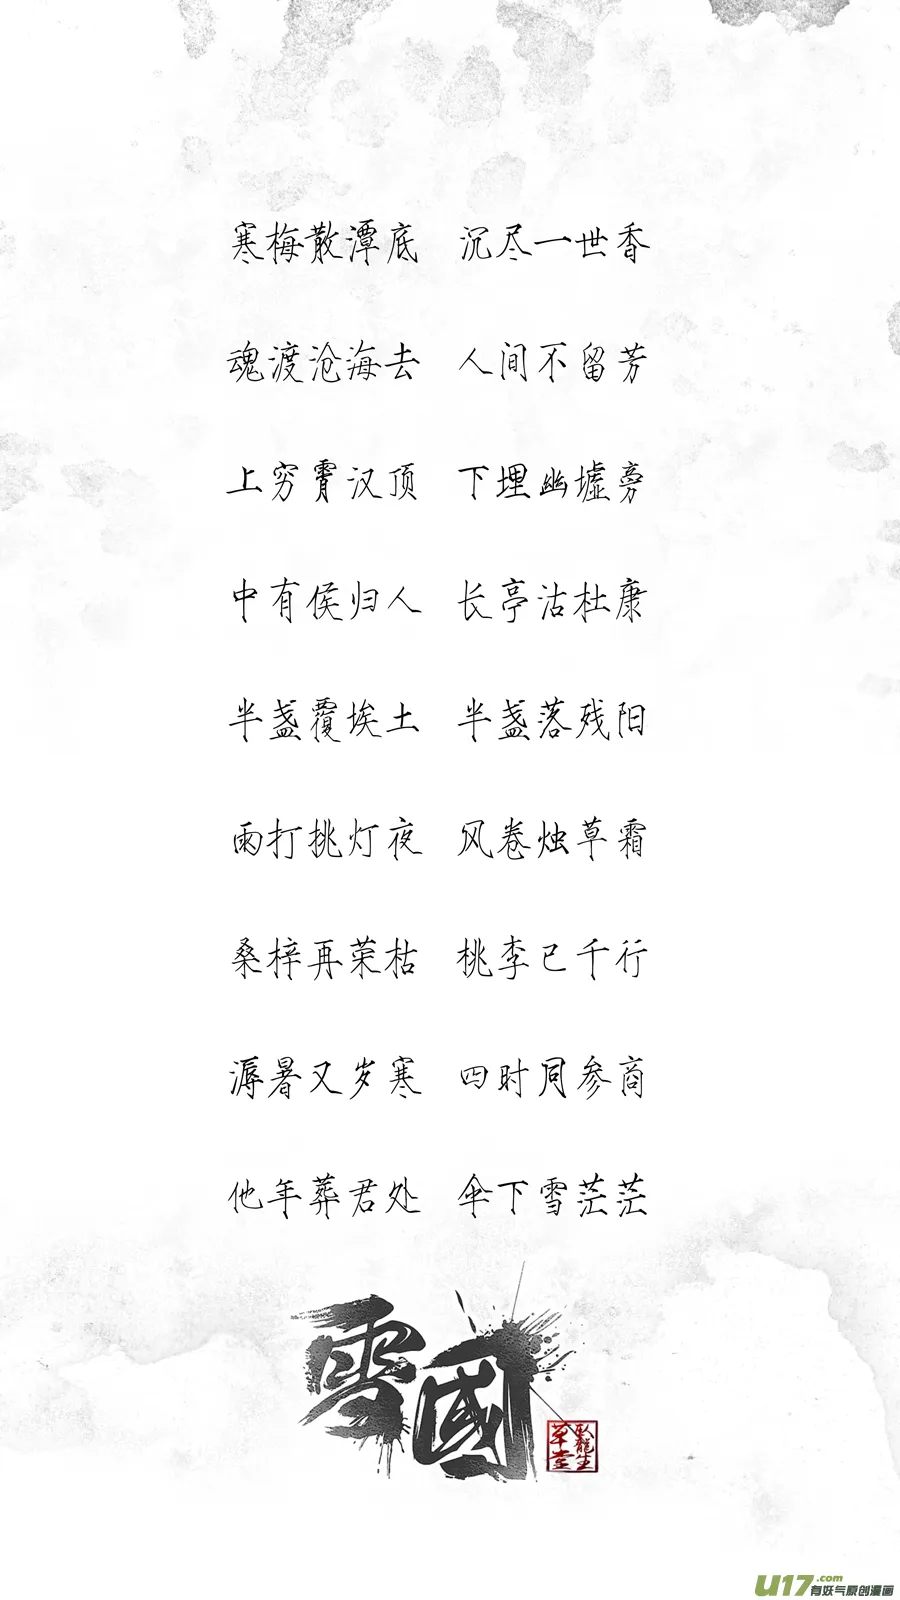 寒梅散潭底 沉尽一世香
魂渡沧海去 人间不留芳
上穷霄汉顶 下埋幽墟旁
中有侯归人 长亭沽杜康
半盏覆埃土 半盏落残阳
雨打挑灯夜 风卷烛草霜
桑梓再荣枯 桃李已千行
溽暑又岁寒 四时同参商
他年葬君处 伞下雪茫茫
雪國
臥龍生
草堂
U17.com
有妖气原创漫画